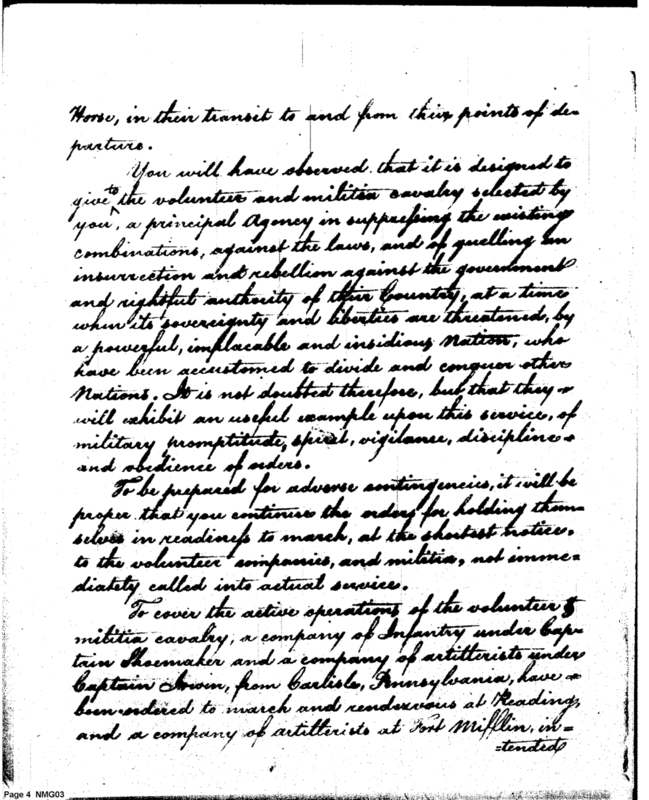 Horse, in their transit to and from their points of de=
parture.
You will have observed that it is designed to
give to the volunteer and militia cavalry selected by
you, a principal Agency in suppressing the existing
combinations, against the laws, and of quelling an
insurrection and rebellion against the government
and rightful authority of their Country, at a time
when its sovereignty and liberties are threatened, by
a powerful, implacable and insidious Nation, who
have been accustomed to divide and conquer other
Nations. It is not doubted therefore, but that they
will exhibit an useful example upon this service, of
military promptitude, spirit, vigilance, discipline
and obedience of orders.
To be prepared for adverse contingencies, it will be
proper that you continue the orders for holding them=
selves in readiness to march, at the shortest notice,
to the volunteer companies, and militia, not imme=
diately called into actual service.
To cover the active operations of the volunteer &
militia cavalry, a company of Infantry under Cap=
tain Shoemaker and a company of artillerists under
Captain Irwin, from Carlisle, Pennsylvania, have
been ordered to march and rendezvous at Reading,
and a company of artillerists at Fort Mifflin, in=
=tended
Page 4 NMG03